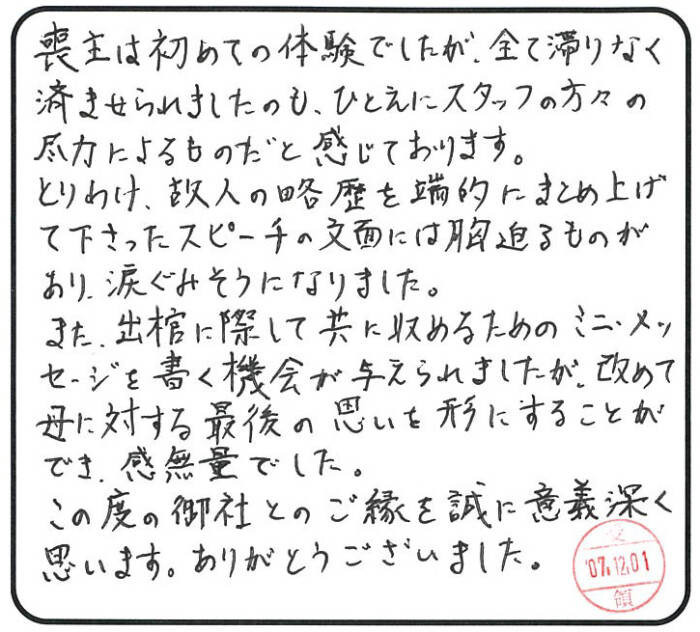 喪主は初めての体験でしたが、全て滞りなく
済ませられましたのも、ひとえにスタッフの方々の
尽力によるものだと感じております。
とりわけ、故人の略歴を端的にまとめ上げ
て下さったスピーチの文面には胸迫るものが
あり、涙ぐみそうになりました。
また、出棺に際して共に収めるためのミニ・メッ
セージを書く機会が与えられましたが、改めて
母に対する最後の思いを形にすることが
でき、感無量でした。
この度の御社とのご縁を誠に意義深く
思います。ありがとうございました。
受
'07.12.01
領